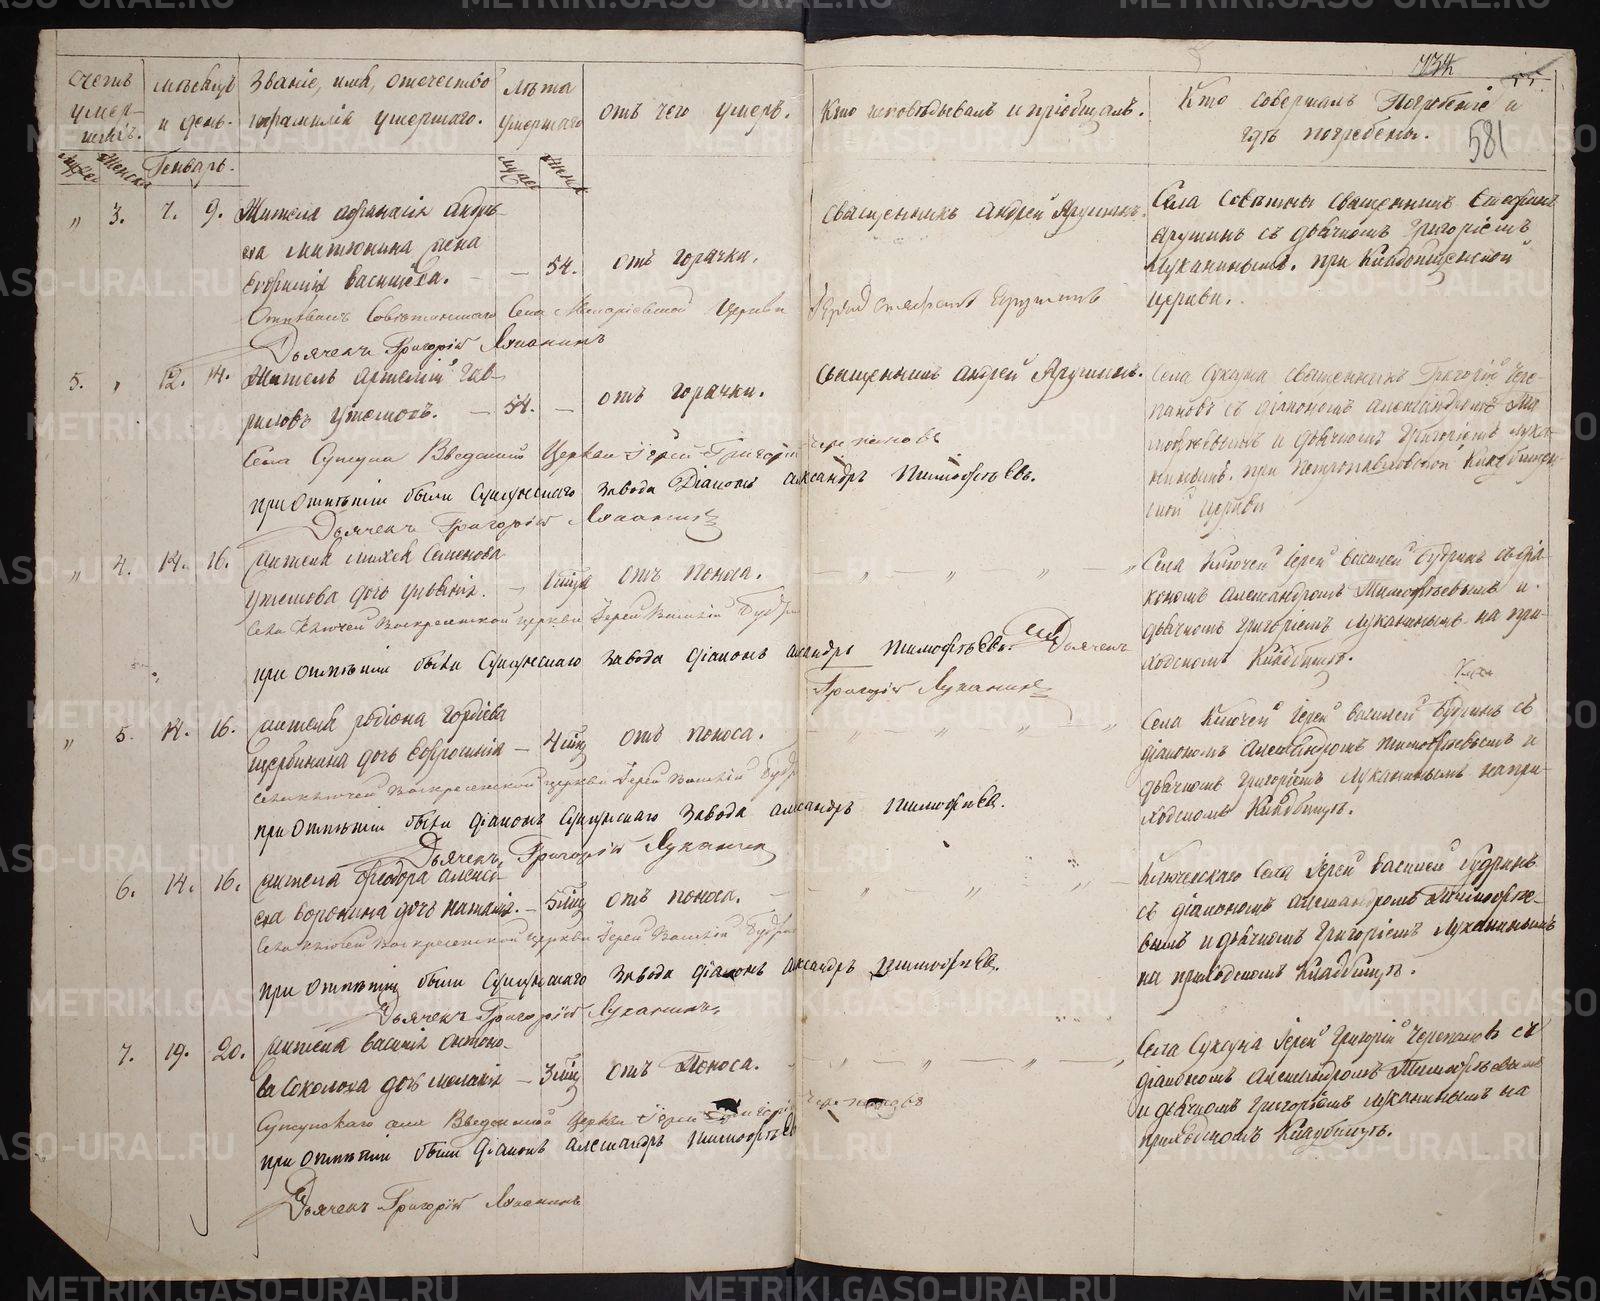 734
55.
581
Счетъ умер-шихъ.
Мѣсяцъ и день.
Званіе, имя, отечество и фамилія умершаго.
Лѣта умершаго
Отъ чего умеръ.
Кто исповѣдывалъ и пріобщалъ.
Кто совершалъ Погребеніе и гдѣ погребены.
Мужес
Женска
Генварь.
мужес
женск
„ 3. 7. 9. Жителя Афанасія Андре-
ева Митюнина жена
Евфимія Васильева. — — 54. отъ горячки.
Священникъ Андрей Ярушинъ.
Села Совѣтны священникъ Стефанъ
Ярушинъ съ дьячкомъ Григоріемъ
Луканинымъ. при Кладбищенской
церкви.
Отпѣвалъ Села церкви Іерей Ярушинъ
Дьячекъ Григорій Луканинъ
5. „ 12. 14. Житель Артемій Гав-
риловъ Утемовъ. — 54. — отъ горячки.
Священникъ Андрей Ярушинъ.
Села Суксуна священникъ Григорій Чере-
пановъ съ діакономъ Александромъ Ти-
мофѣевымъ и дьячкомъ Григоріемъ Лука-
нинымъ. при Петропавловской Кладбищен-
ской церкви
Села Суксуна Введенской Церкви Іерей Григорій Черепановъ
при отпѣтіи были Суксунскаго завода Діаконъ Александръ Тимофѣевъ.
Дьячекъ Григорій Луканинъ
„ 4. 14. 16. Жителя Михея Семенова
Утемова дочь — 1 отъ поноса. — „ — „ — „ — „
Села Ключей Іерей Василей Будринъ съ діа-
кономъ Александромъ Тимофѣевымъ и
дьячкомъ Григоріемъ Луканинымъ на при-
ходскомъ Кладбищѣ.
Села Ключей Воскресенской церкви Іерей Василій Будринъ
при отпѣтіи были Суксунскаго завода діаконъ Александръ Тимофѣевъ. Дьячекъ
Григорій Луканинъ
„ 5. 14. 16. Жителя Родіона Гордѣева
Щербинина дочь Евфросинія — 4 отъ поноса. — „ — „ — „ — „
Села Ключей Іерей Василей Будринъ съ
діакономъ Александромъ Тимофѣевымъ и
дьячкомъ Григоріемъ Луканинымъ на при-
ходскомъ Кладбищѣ.
Села Ключей Воскресенской церкви Іерей Василій Будр
при отпѣтіи были діаконъ Суксунскаго завода Александръ Тимофѣевъ.
Дьячекъ Григорій Луканинъ
6. 14. 16. Жителя Феодора Алексѣ-
ева Воронина дочь Наталія. — 5 отъ поноса. — „ — „ — „
Ключевскаго Села Іерей Василей Будринъ
съ діакономъ Александромъ Тимофѣе-
вымъ и дьячкомъ Григоріемъ Луканинымъ
на приходскомъ Кладбищѣ.
Села Ключей Воскресенской церкви Іерей Василій Будрин
при отпѣтіи были Суксунскаго завода діаконъ Александръ Тимофѣевъ.
Дьячекъ Григорій Луканинъ.
7. 19. 20. Жителя Василія Антоно-
ва Соколова дочь Меланія — 3 отъ Поноса. „ — „ — „ — „
Села Суксуна Іерей Григорій Черепановъ съ
діакономъ Александромъ Тимофѣевымъ
и дьячкомъ Григоріемъ Луканинымъ на
приходскомъ Кладбищѣ.
Суксунскаго села Введенской Церкви Іерей Григорій Черепановъ
при отпѣтіи были діаконъ Александръ Тимофѣевъ
Дьячекъ Григорій Луканинъ
METRIKI.GASO-URAL.RU